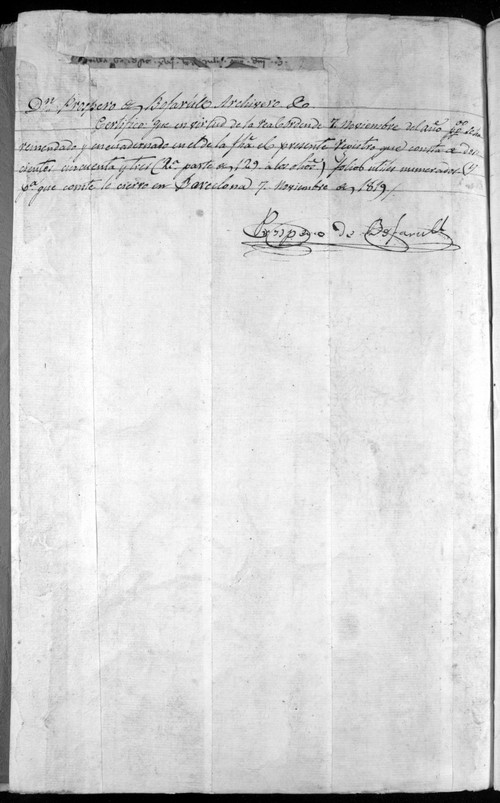 Dn. Prospero de Bofarull Archivero &a
Certifico: Que en virtud de la real orden de 7 noviembre del año
remendado y encuadernado en el de la fha. el presente registro que consta de dos-
cientos cincuenta y tres (2a. parte de 129 a los otros) folios utiles numerados. Y
pa. que conste le cierro en Barcelona 7 noviembre de 1819//
Prospero de Bofarull